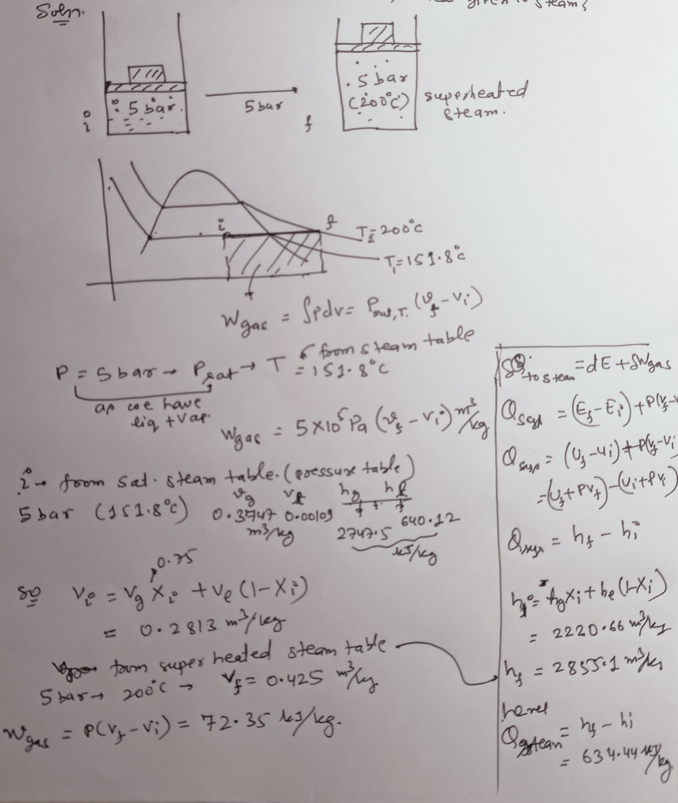 given to steam?
Soln.
5 bar
i
5 bar
f
5 bar
(200°C)
superheated
steam.
i
f
T₂=200°C
T₁=151.8°C
Wgas = ∫Pdv = Psat,T. (vf - vi)
P = 5 bar → Psat → T from steam table
= 151.8°C
as we have
liq + vap.
Wgas = 5×10⁵ Pa (vf - vi) m³/kg
i → from sat. steam table. (pressure table)
vg vl hg hl
5 bar (151.8°C) 0.3747 0.00109 2747.5 640.12
m³/kg kJ/kg
0.75
so vi = vg xi + vl (1-xi)
= 0.2813 m³/kg
from super heated steam table
5 bar → 200°C → vf = 0.425 m³/kg
Wgas = P(vf - vi) = 72.35 kJ/kg.
δQ to steam = dE + δWgas
= (Ef - Ei) + P(vf - v
= (Uf - ui) + P(vf - vi
= (Uf + Pvf) - (Ui + Pvi
= hf - hi
hi = hg xi + hl (1-xi)
= 2220.66 m³/kg
hf = 2855.1 m³/kg
hence
Qsteam = hf - hi
= 634.44 kJ/kg